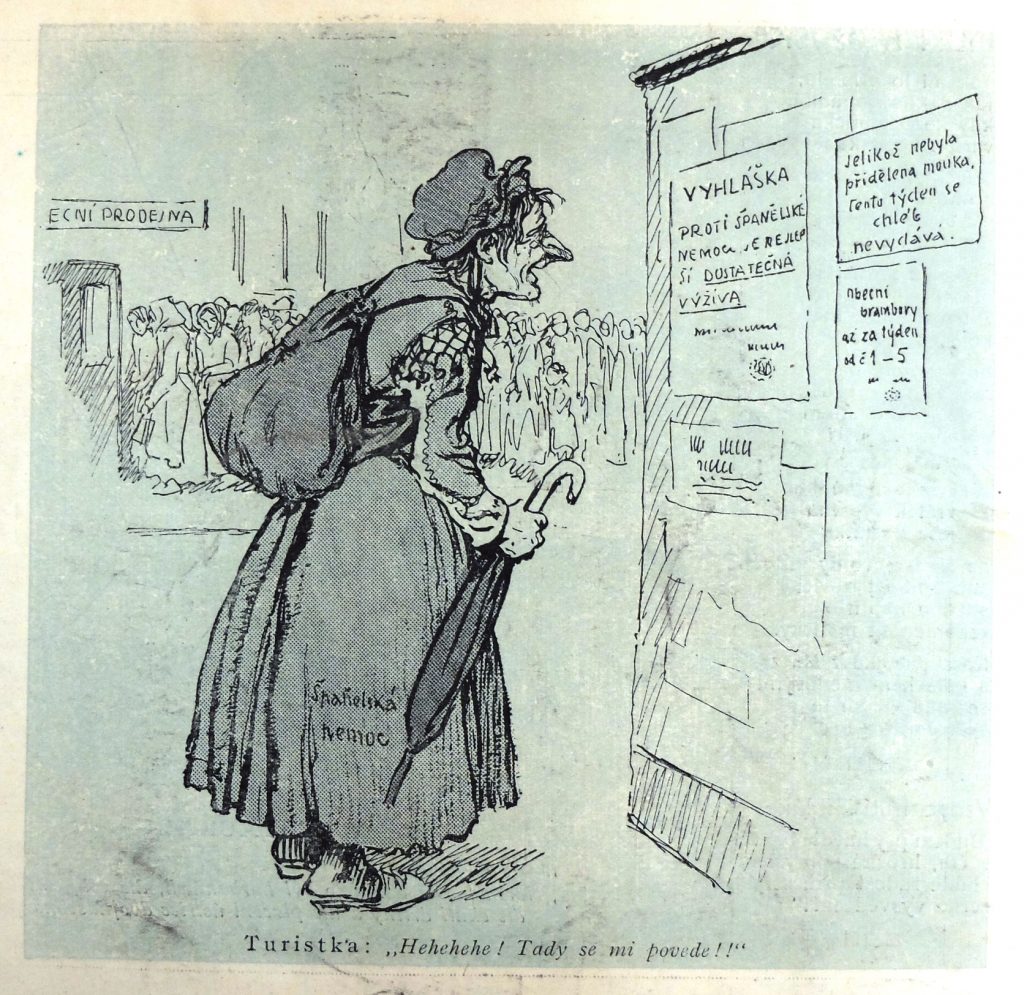 ECNÍ PRODEJNA
VYHLÁŠKA
PROTI ŠPANĚLSKÉ
NEMOCI JE NEJLEP
ŠÍ DOSTATEČNÁ
VÝŽIVA
Jelikož nebyla
přidělena mouka,
tento týden se
chléb
nevydává.
obecní
brambory
až za týden
od č 1–5
Španělská
nemoc
Turistka: „Hehehehe! Tady se mi povede!!“